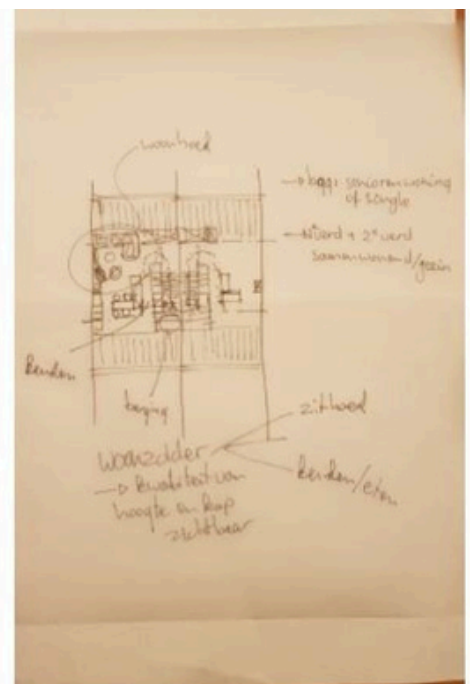 woonhoek
→ bggr: seniorenwoning
of single
→ 1e verd + 2e verd
samenwonend/gezin
keuken
berging
Woonzolder
zithoek
keuken/eten
→ kwaliteit van
hoogte en kap
zichtbaar